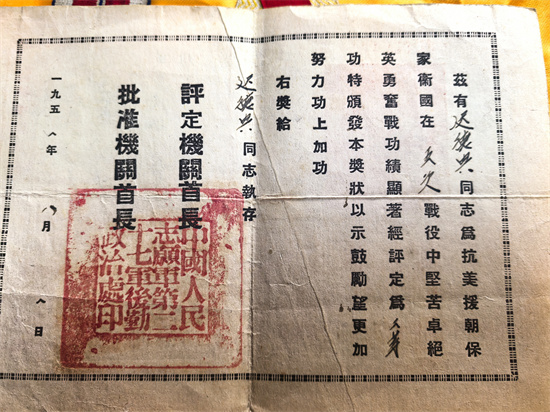 茲有迟德興同志爲抗美援朝保
家衛國在 戰役中堅苦卓絕
英勇奮戰功績顯著經評定爲
功特頒發本獎狀以示鼓勵望更加
努力功上加功
右獎給
迟德興同志執存
評定機關首長
批准機關首長
一九五 年 月 日
中國人民
志願軍第二
十七軍後勤
政治處印